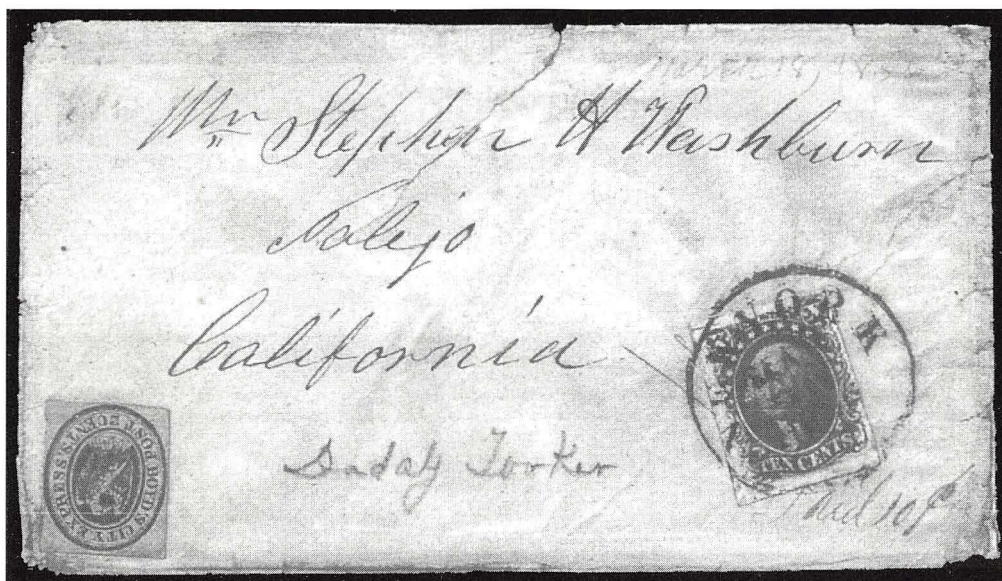 Mr Stephen H Washburn
Valejo
California
BOYD'S CITY EXPRESS POST 2 CENTS
TEN CENTS
Paid 10¢